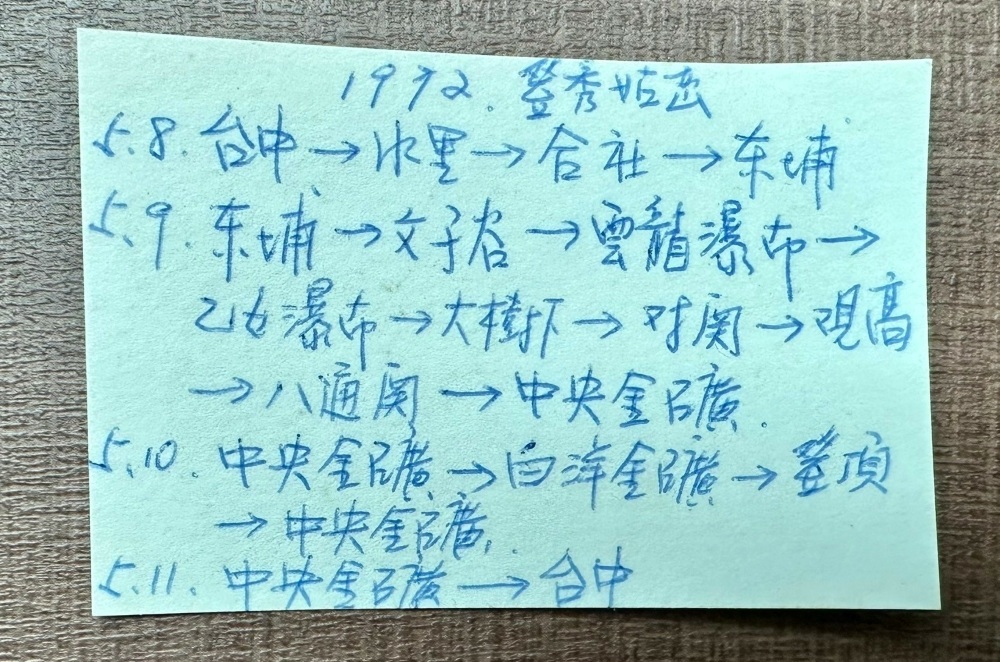 1972. 登秀姑峦
5.8. 台中→水里→合社→东埔
5.9. 东埔→父子谷→雲龍瀑布→
乙女瀑布→大樹下→对関→观高
→八通関→中央金礦.
5.10. 中央金礦→白洋金礦→登顶
→中央金礦.
5.11. 中央金礦→台中